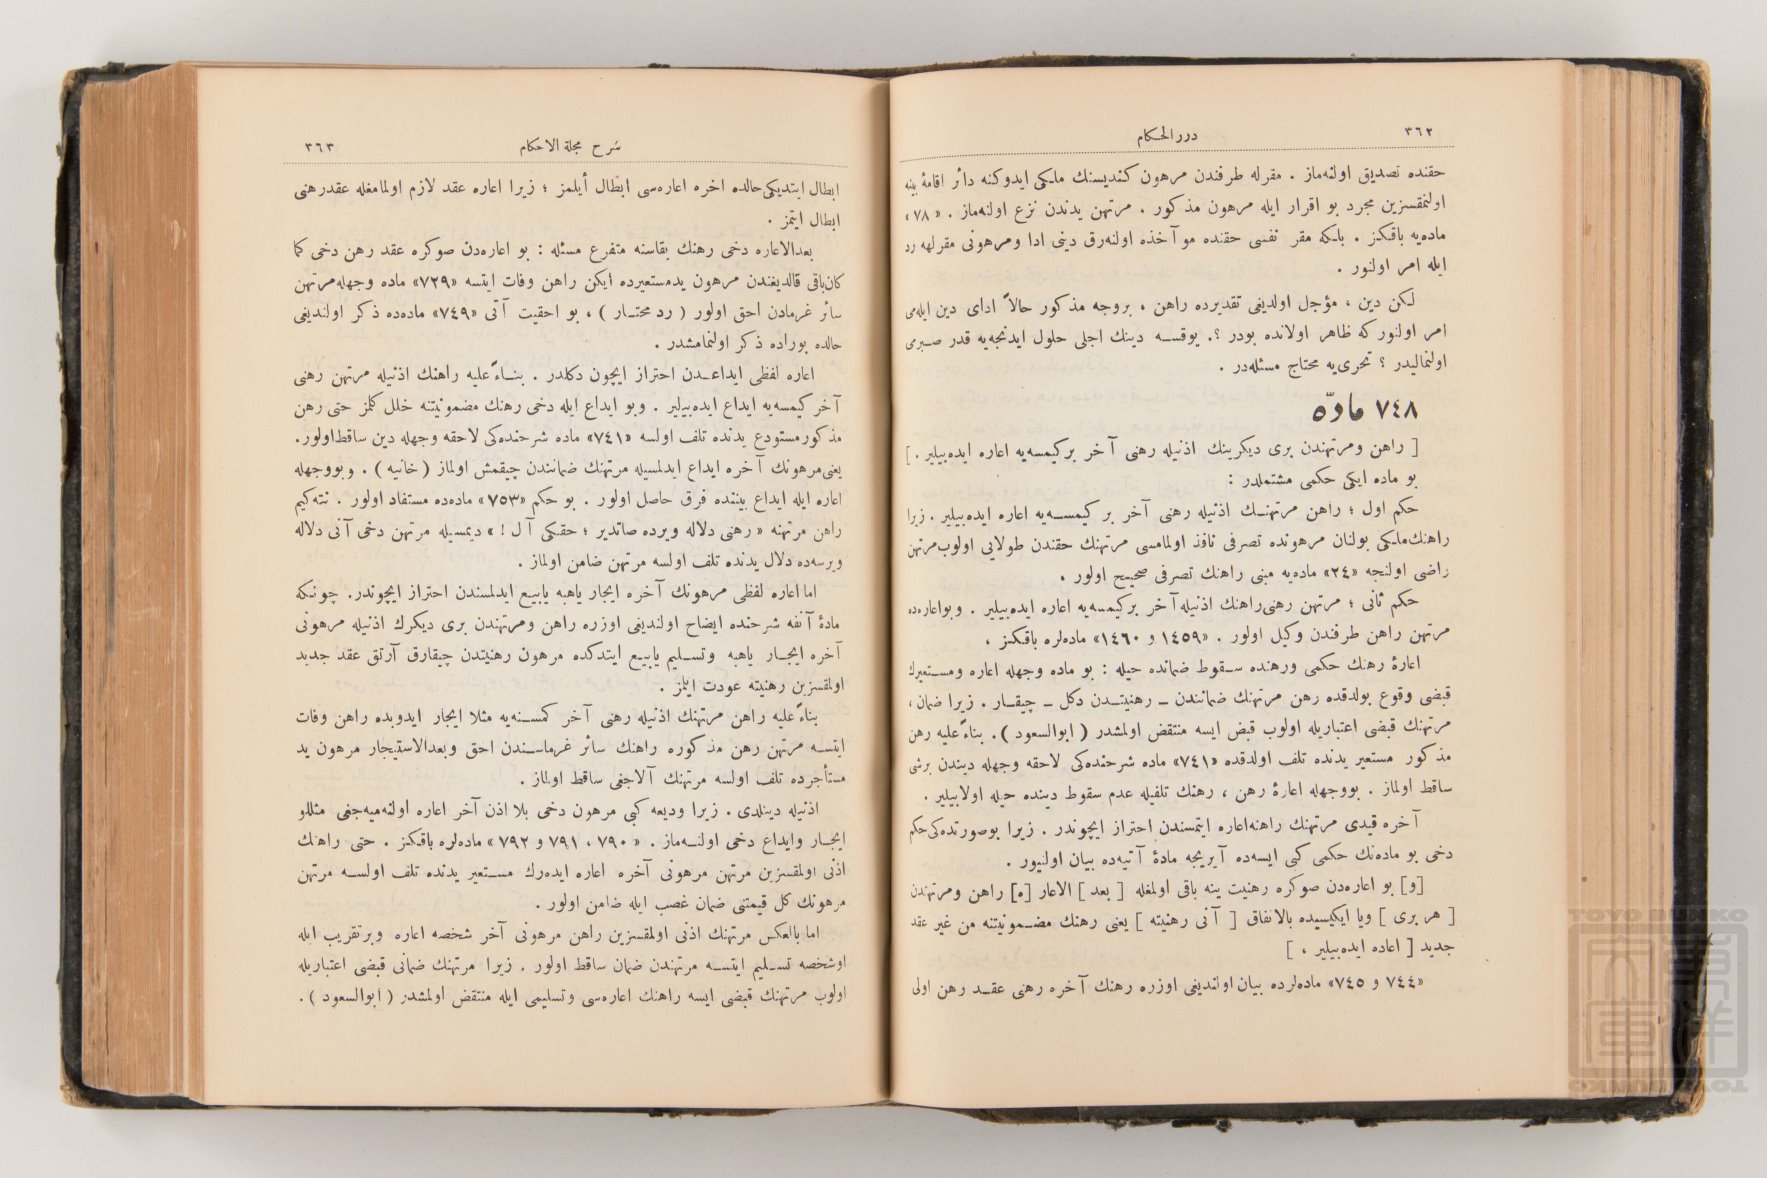 ٣٦٢
درر الحكام
حقنده تصديق اولنه‌ماز . مقرله طرفندن مرهون كنديسنك ملكى ايدوكنه دائر اقامۀ بينه
اولنمقسزين مجرد بو اقرار ايله مرهون مذكور . مرتهن يدندن نزع اولنه‌ماز . «٧٨»
ماده‌يه باقكز . بلكه مقر نفسى حقنده موآخذه اولنه‌رق دينى ادا ومرهونى مقرلهه رد
ايله امر اولنور .
لكن دين ، مؤجل اولديغى تقديرده راهن ، بروجه مذكور حالاً اداى دين ايله‌مى
امر اولنور كه ظاهر اولانده بودر ؟. يوقسه دينك اجلى حلول ايدنجه‌يه قدر صبرمى
اولنماليدر ؟ تحرى‌يه محتاج مسئله‌در .
٧٤٨ مادّه
[ راهن ومرتهندن برى ديكرينك اذنيله رهنى آخر بركيمسه‌يه اعاره ايده‌بيلير . ]
بو ماده ايكى حكمى مشتملدر :
حكم اول ؛ راهن مرتهنك اذنيله رهنى آخر بر كيمسه‌يه اعاره ايده‌بيلير . زيرا
راهنك‌ملكى بولنان مرهونده تصرفى نافذ اولمامسى مرتهنك حقندن طولايى اولوب‌مرتهن
راضى اولنجه «٢٤» ماده‌يه مبنى راهنك تصرفى صحيح اولور .
حكم ثانى ؛ مرتهن رهنى‌راهنك اذنيله‌آخر بركيمسه‌يه اعاره ايده‌بيلير . وبواعاره‌ده
مرتهن راهن طرفندن وكيل اولور . «١٤٥٩ و ١٤٦٠» ماده‌لره باقكز .
اعارۀ رهنك حكمى ورهنده سقوط ضمانده حيله : بو ماده وجهله اعاره ومستعيرك
قبضى وقوع بولدقده رهن مرتهنك ضمانندن ـ رهنيتدن دكل ـ چيقار . زيرا ضمان ،
مرتهنك قبضى اعتباريله اولوب قبض ايسه منتقض اولمشدر ( ابوالسعود ) . بناءً‌عليه رهن
مذكور مستعير يدنده تلف اولدقده «٧٤١» ماده شرحنده‌كى لاحقه وجهله ديندن برشى
ساقط اولماز . بووجهله اعارۀ رهن ، رهنك تلفيله عدم سقوط دينده حيله اولابيلير .
آخره قيدى مرتهنك راهنه‌اعاره ايتمسندن احتراز ايچوندر . زيرا بوصورتده‌كى‌حكم
دخى بو ماده‌نك حكمى كبى ايسه‌ده آيريجه مادۀ آتيه‌ده بيان اولنيور .
[و] بو اعاره‌دن صوكره رهنيت ينه باقى اولمغله [ بعد ] الاعار [ه] راهن ومرتهندن
[ هر برى ] ويا ايكيسيده بالاتفاق [ آنى رهنيته ] يعنى رهنك مضمونيتنه من غير عقد
جديد [ اعاده ايده‌بيلير . ]
«٧٤٤ و ٧٤٥» ماده‌لرده بيان اولنديغى اوزره رهنك آخره رهنى عقد رهن اولى
شرح مجلة الاحكام
٣٦٣
ابطال ايتديكى‌حالده اخره اعاره‌سى ابطال أيلمز ؛ زيرا اعاره عقد لازم اولمامغله عقدرهنى
ابطال ايتمز .
بعدالاعاره دخى رهنك بقاسنه متفرع مسئله : بو اعاره‌دن صوكره عقد رهن دخى كما
كان‌باقى قالديغندن مرهون يدمستعيرده ايكن راهن وفات ايتسه «٧٢٩» ماده وجهله‌مرتهن
سائر غرمادن احق اولور ( رد محتار ) ، بو احقيت آتى «٧٤٩» ماده‌ده ذكر اولنديغى
حالده بوراده ذكر اولنمامشدر .
اعاره لفظى ايداعدن احتراز ايچون دكلدر . بناءً عليه راهنك اذنيله مرتهن رهنى
آخر كيمسه‌يه ايداع ايده‌بيلير . وبو ايداع ايله دخى رهنك مضمونيتنه خلل كلمز حتى رهن
مذكورمستودع يدنده تلف اولسه «٧٤١» ماده شرحنده‌كى لاحقه وجهله دين ساقط‌اولور.
يعنى‌مرهونك آخره ايداع ايدلمسيله مرتهنك ضمانندن چيقمش اولماز ( خانيه ) . وبووجهله
اعاره ايله ايداع بيننده فرق حاصل اولور . بو حكم «٧٥٣» ماده‌ده مستفاد اولور . نته‌كيم
راهن مرتهنه «رهنى دلاله ويرده صاتدير ؛ حقكى آل !» ديمسيله مرتهن دخى آنى دلاله
ويرسه‌ده دلال يدنده تلف اولسه مرتهن ضامن اولماز .
اما اعاره لفظى مرهونك آخره ايجار ياهبه يابيع ايدلمسندن احتراز ايچوندر. چونكه
مادۀ آنفه شرحنده ايضاح اولنديغى اوزره راهن ومرتهندن برى ديكرك اذنيله مرهونى
آخره ايجار ياهبه وتسليم يابيع ايتدكده مرهون رهنيتدن چيقارق آرتق عقد جديد
اولمقسزين رهنيته عودت ايلمز .
بناءً‌عليه راهن مرتهنك اذنيله رهنى آخر كمسنه‌يه مثلا ايجار ايدوبده راهن وفات
ايتسه مرتهن رهن مذكوره راهنك سائر غرماسندن احق وبعدالاستيجار مرهون يد
مستأجرده تلف اولسه مرتهنك آلاجغى ساقط اولماز .
اذنيله دينلدى . زيرا وديعه كبى مرهون دخى بلا اذن آخر اعاره اولنه‌ميه‌جغى مثللو
ايجار وايداع دخى اولنه‌ماز . « ٧٩٠ ، ٧٩١ و ٧٩٢ » ماده‌لره باقكز . حتى راهنك
اذنى اولمقسزين مرتهن مرهونى آخره اعاره ايده‌رك مستعير يدنده تلف اولسه مرتهن
مرهونك كل قيمتنى ضمان غصب ايله ضامن اولور .
اما بالعكس مرتهنك اذنى اولمقسزين راهن مرهونى آخر شخصه اعاره وبرتقريب ايله
اوشخصه تسليم ايتسه مرتهندن ضمان ساقط اولور . زيرا مرتهنك ضمانى قبضى اعتباريله
اولوب مرتهنك قبضى ايسه راهنك اعاره‌سى وتسليمى ايله منتقض اولمشدر ( ابوالسعود ) .
TOYO BUNKO